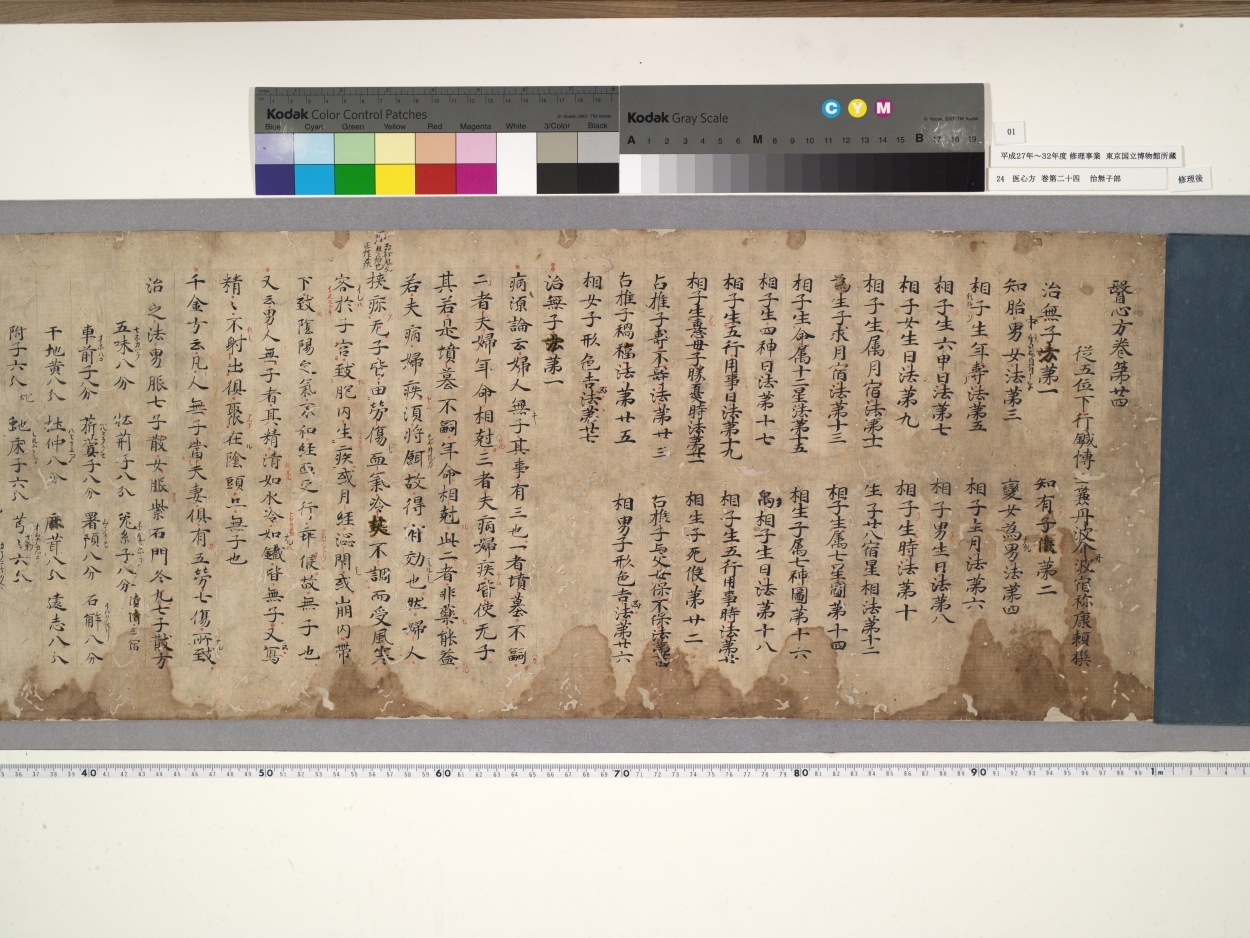 Kodak Color Control Patches
© Kodak, 2007 TM: Kodak
Blue Cyan Green Yellow Red Magenta White 3/Color Black
Kodak Gray Scale
C Y M
© Kodak, 2007 TM: Kodak
A 1 2 3 4 5 6 M 8 9 10 11 12 13 14 15 B 17 18 19
01
平成27年～32年度 修理事業 東京国立博物館所蔵
24 医心方 巻第二十四 治無子部
修理後
醫心方卷第廿四
從五位下行鍼博士丹波介宿祢康頼撰
治無子法第一 知有子法第二
知胎男女法第三 變女為男法第四
相子生年壽法第五 相子生月法第六
相子生六甲日法第七 相子男生日法第八
相子女生日法第九 相子生時法第十
相子生属月宿法第十一 生子廿八宿星相法第十二
為生子求月宿法第十三 相子生属七星圖第十四
相子生命属十二星法第十五 相生子属七神圖第十六
相子生四神日法第十七 禹相子生日法第十八
相子生五行用事日法第十九 相子生五行用事時法第廿
相子生喜母子勝憂時法第廿一 相生子死候第廿二
占推子壽不壽法第廿三 占推子與父母保不保法第廿四
占推子禍福法第廿五 相男子形色吉法第廿六
相女子形色吉法第廿七
治無子法第一
病源論云婦人無子其事有三也一者墳墓不嗣
二者夫婦年命相尅三者夫病婦疾皆使无子
其若是墳墓不嗣年命相尅此二者非藥能益
若夫病婦疾須將餌故得有効也然婦人
挾疹无子皆由勞傷血氣冷熱不調而受風寒
客於子宮致胞内生疾或月経澁閇或崩内帶
下致陰陽之氣不和経血之行乖候故無子也
又云男人無子者其精清如水冷如鐵皆無子又寫
精精不射出俱聚在陰頭亦無子也
千金方云凡人無子當夫妻俱有五勞七傷所致
治之法男服七子散女服紫石門冬丸七子散方
五味八分 牡荊子八分 菟絲子八分
車前子八分 菥蓂子八分 署預八分 石斛八分
干地黄八分 杜仲八分 鹿茸八分 遠志八分
附子六分 虵床子六分 芎六分
40 50 60 70 80 90 1m